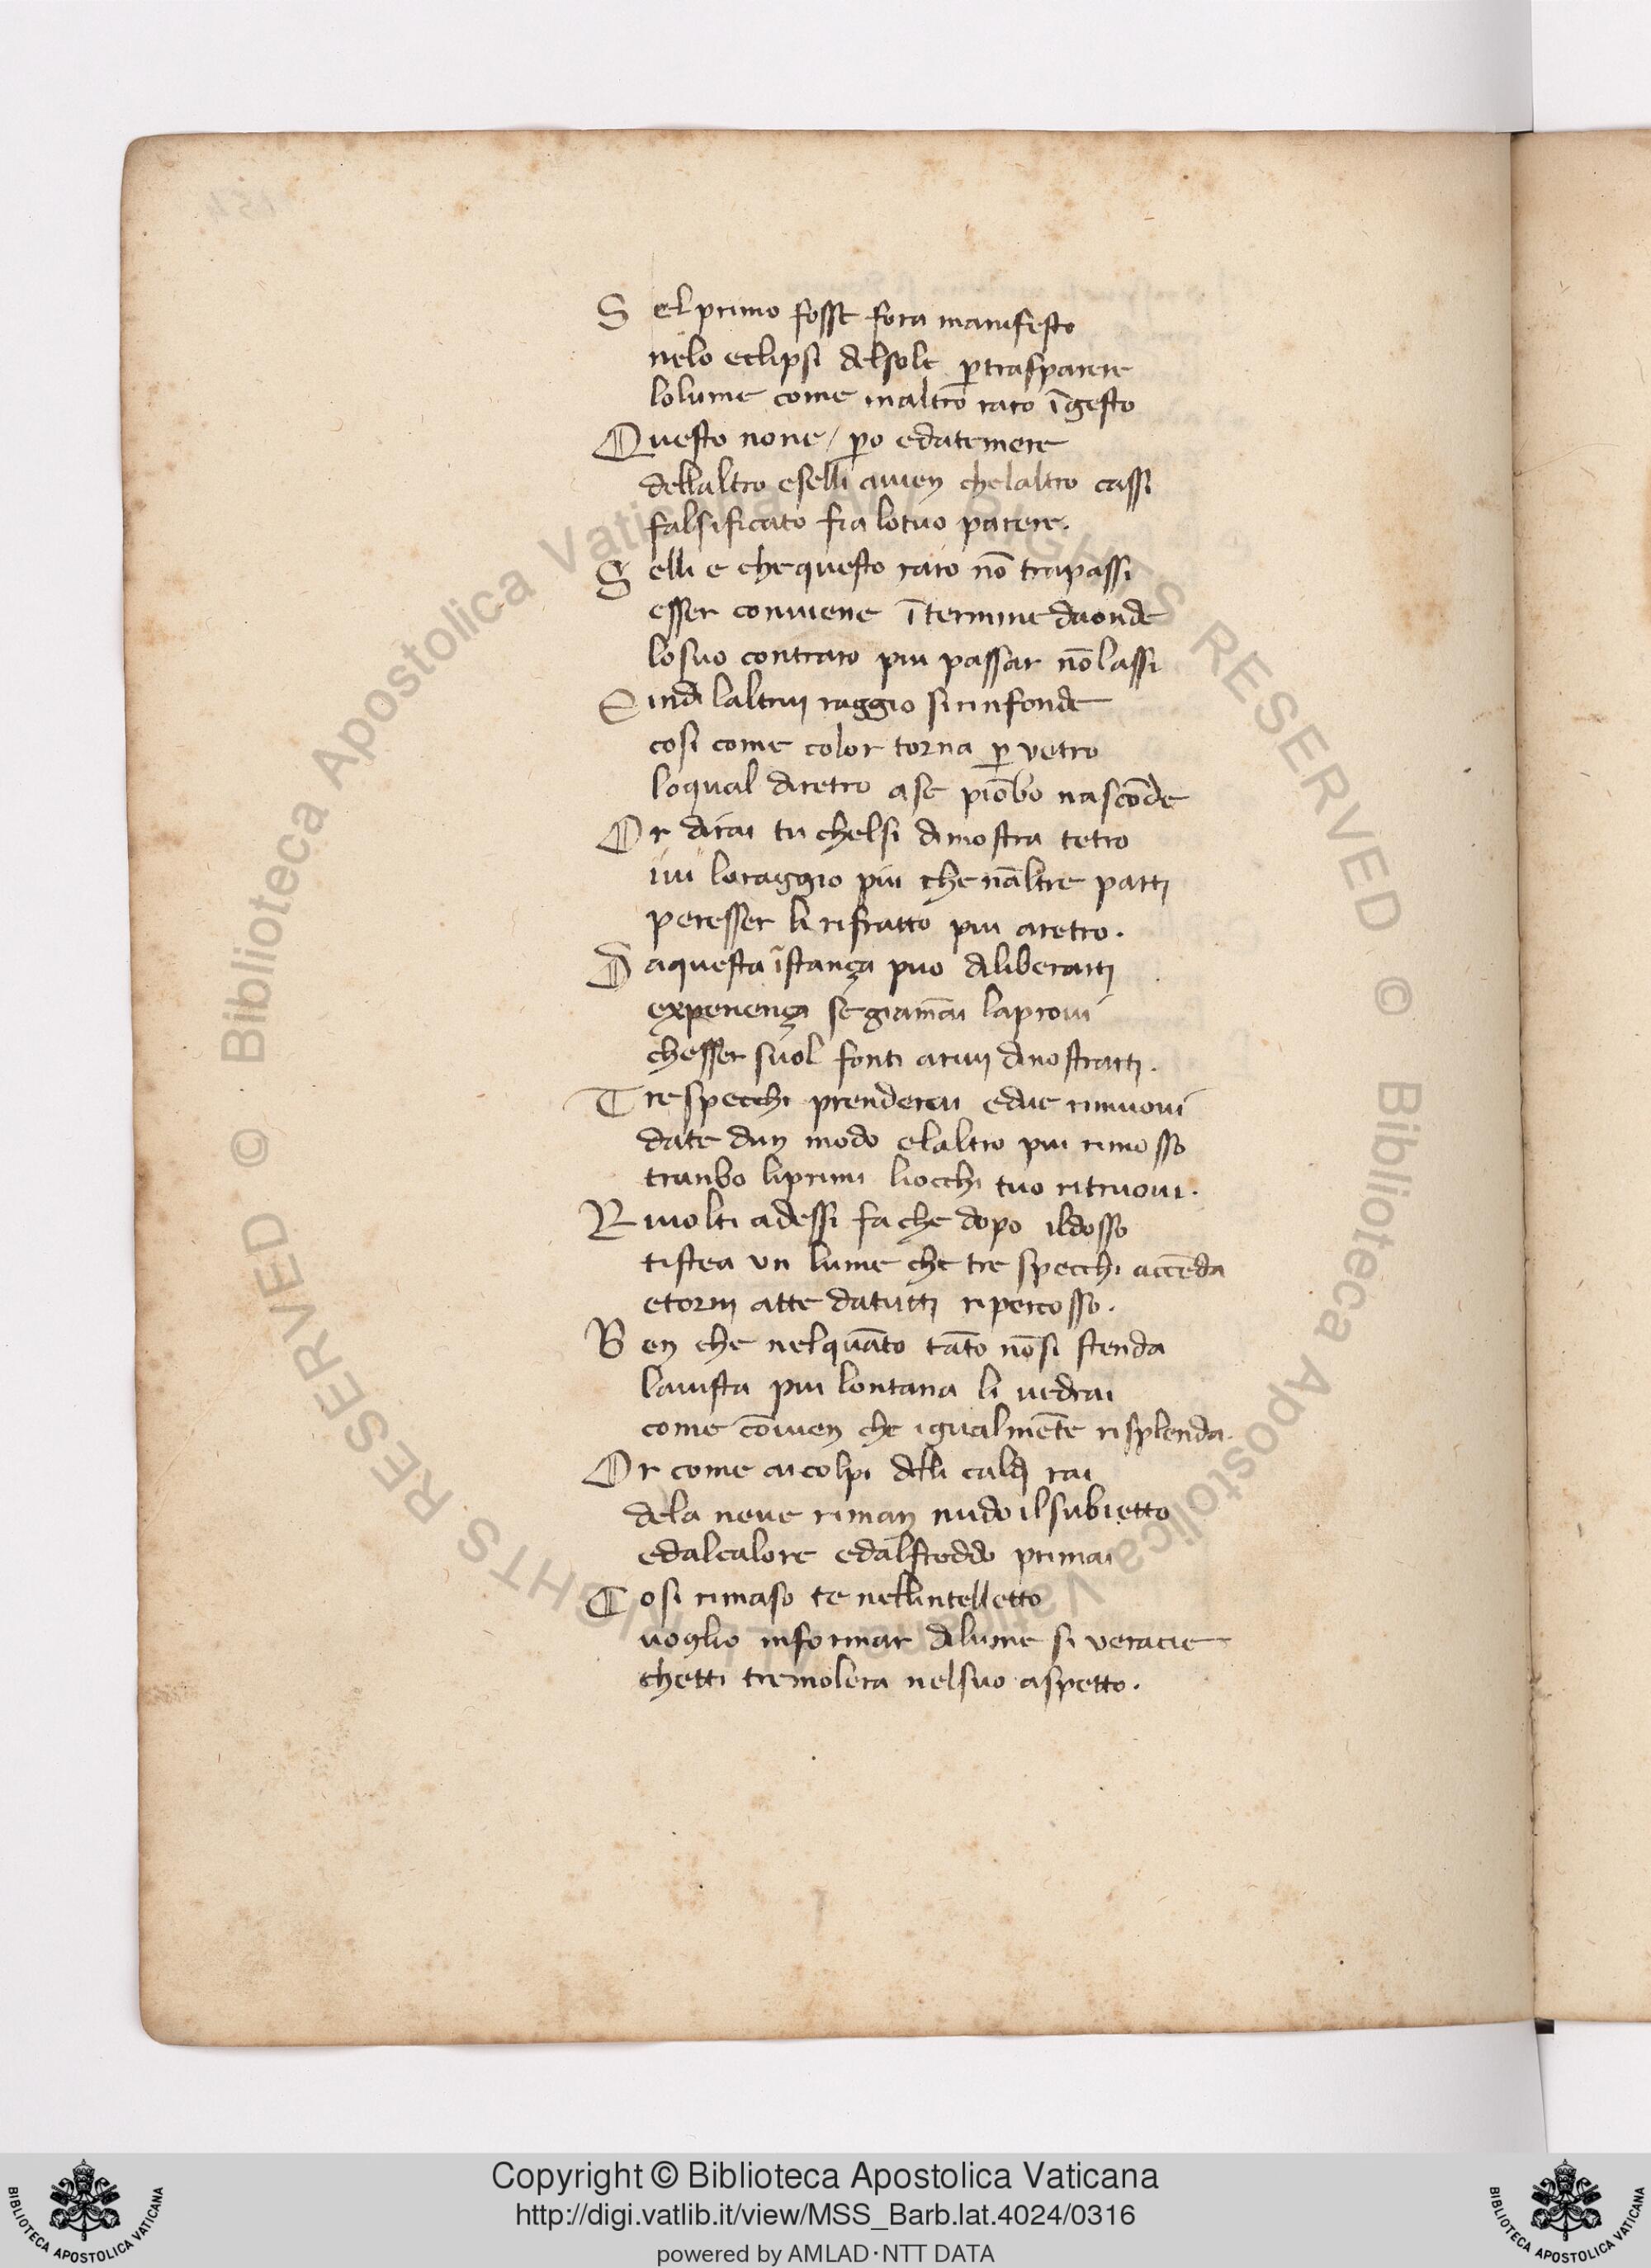 S el primo fosse fora manifesto
nelo eclipsi delsole p̱trasparere
lolume come inaltro raro ī gesto
Questo none / p̱o edatemere
dellaltro eselli avien chelaltro cassi
falsificato fia lotuo parere.
S elli e chequesto raro nō trapassi
esser conviene ī termine daonde
losuo contraro piu passar nō lassi
E indi laltrui raggio si rinfonde
cosi come color torna p̱ vetro
loqual diretro ase piōbo nascōde
Or dirai tu chelsi dimostra tetro
ivi loraggio piu che nāltre parti
peresser li rifratto piu aretro.
D aquesta īstança puo diliberarti
experiença se giamāi laprovi
chesser suol fonti arivi dinostrarti.
T re specchi prenderai edue rimuovi
date dun modo elaltro piu rimosso
tranbo liprimi liocchi tuo ritruovi.
R ivolti adessi fa che dopo ildosso
tistea un lume che tre specchi accēda
etorni atte datutti ripercosso.
B en che nelquāto tāto nōsi stenda
lavista piu lontana li vedrai
come cōvien che igualmēte risplenda.
Or come ai colpi delli caldi rai
dela neve riman nudo ilsubietto
edalcalore edalfreddo primai
C osi rimaso te nellintelletto
voglio informar dilume si veracie
chetti tremolera nelsuo aspetto.
© Biblioteca Apostolica Vaticana ALL RIGHTS RESERVED © Biblioteca Apostolica Vaticana ALL RIGHTS RESERVED
BIBLIOTECA APOSTOLICA VATICANA
Copyright © Biblioteca Apostolica Vaticana
http://digi.vatlib.it/view/MSS_Barb.lat.4024/0316
powered by AMLAD·NTT DATA
BIBLIOTECA APOSTOLICA VATICANA